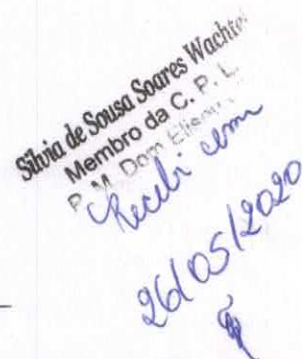 Silvia de Sousa Soares Wachtel
Membro da C. P. L.
P. M. Dom Eliseu
Recebi
26/05/2020